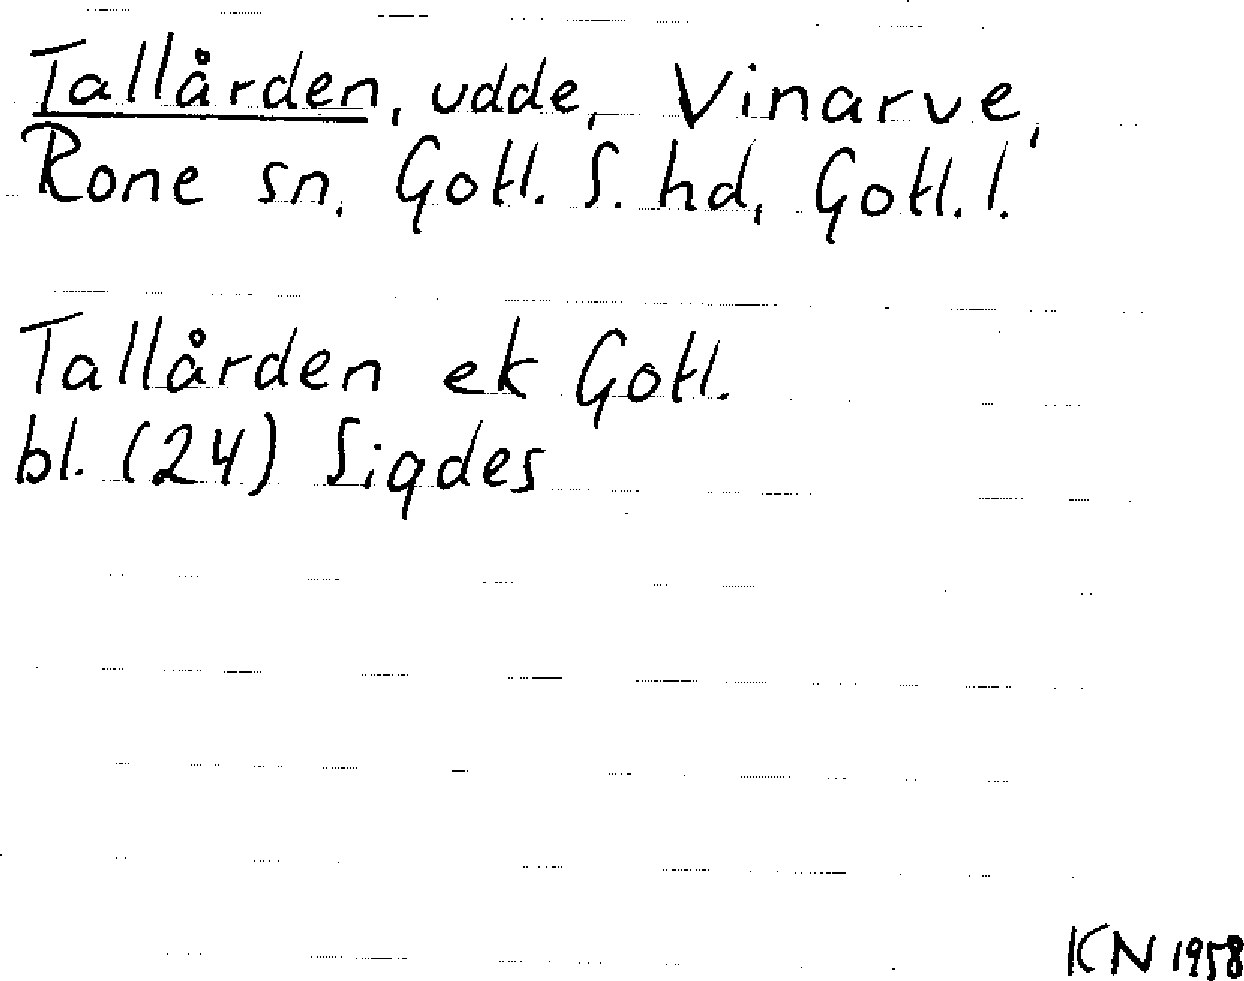 Tallården, udde, Vinarve,
Rone sn. Gotl. S. hd, Gotl. l.
Tallården ek Gotl.
bl. (24) Sigdes
KN 1958